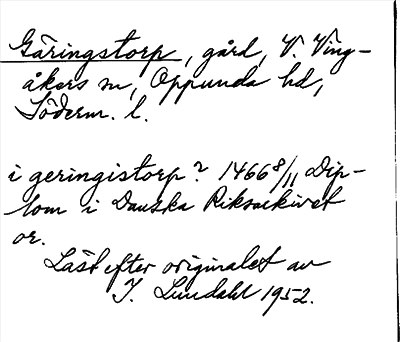 Gäringstorp, gård, V. Ving-
åkers sn, Oppunda hd,
Söderm. l.
i geringistorp? 1466 8/11 Dip-
lom i Danska Riksarkivet
or.
Läst efter originalet av
J. Liedgren 1952.